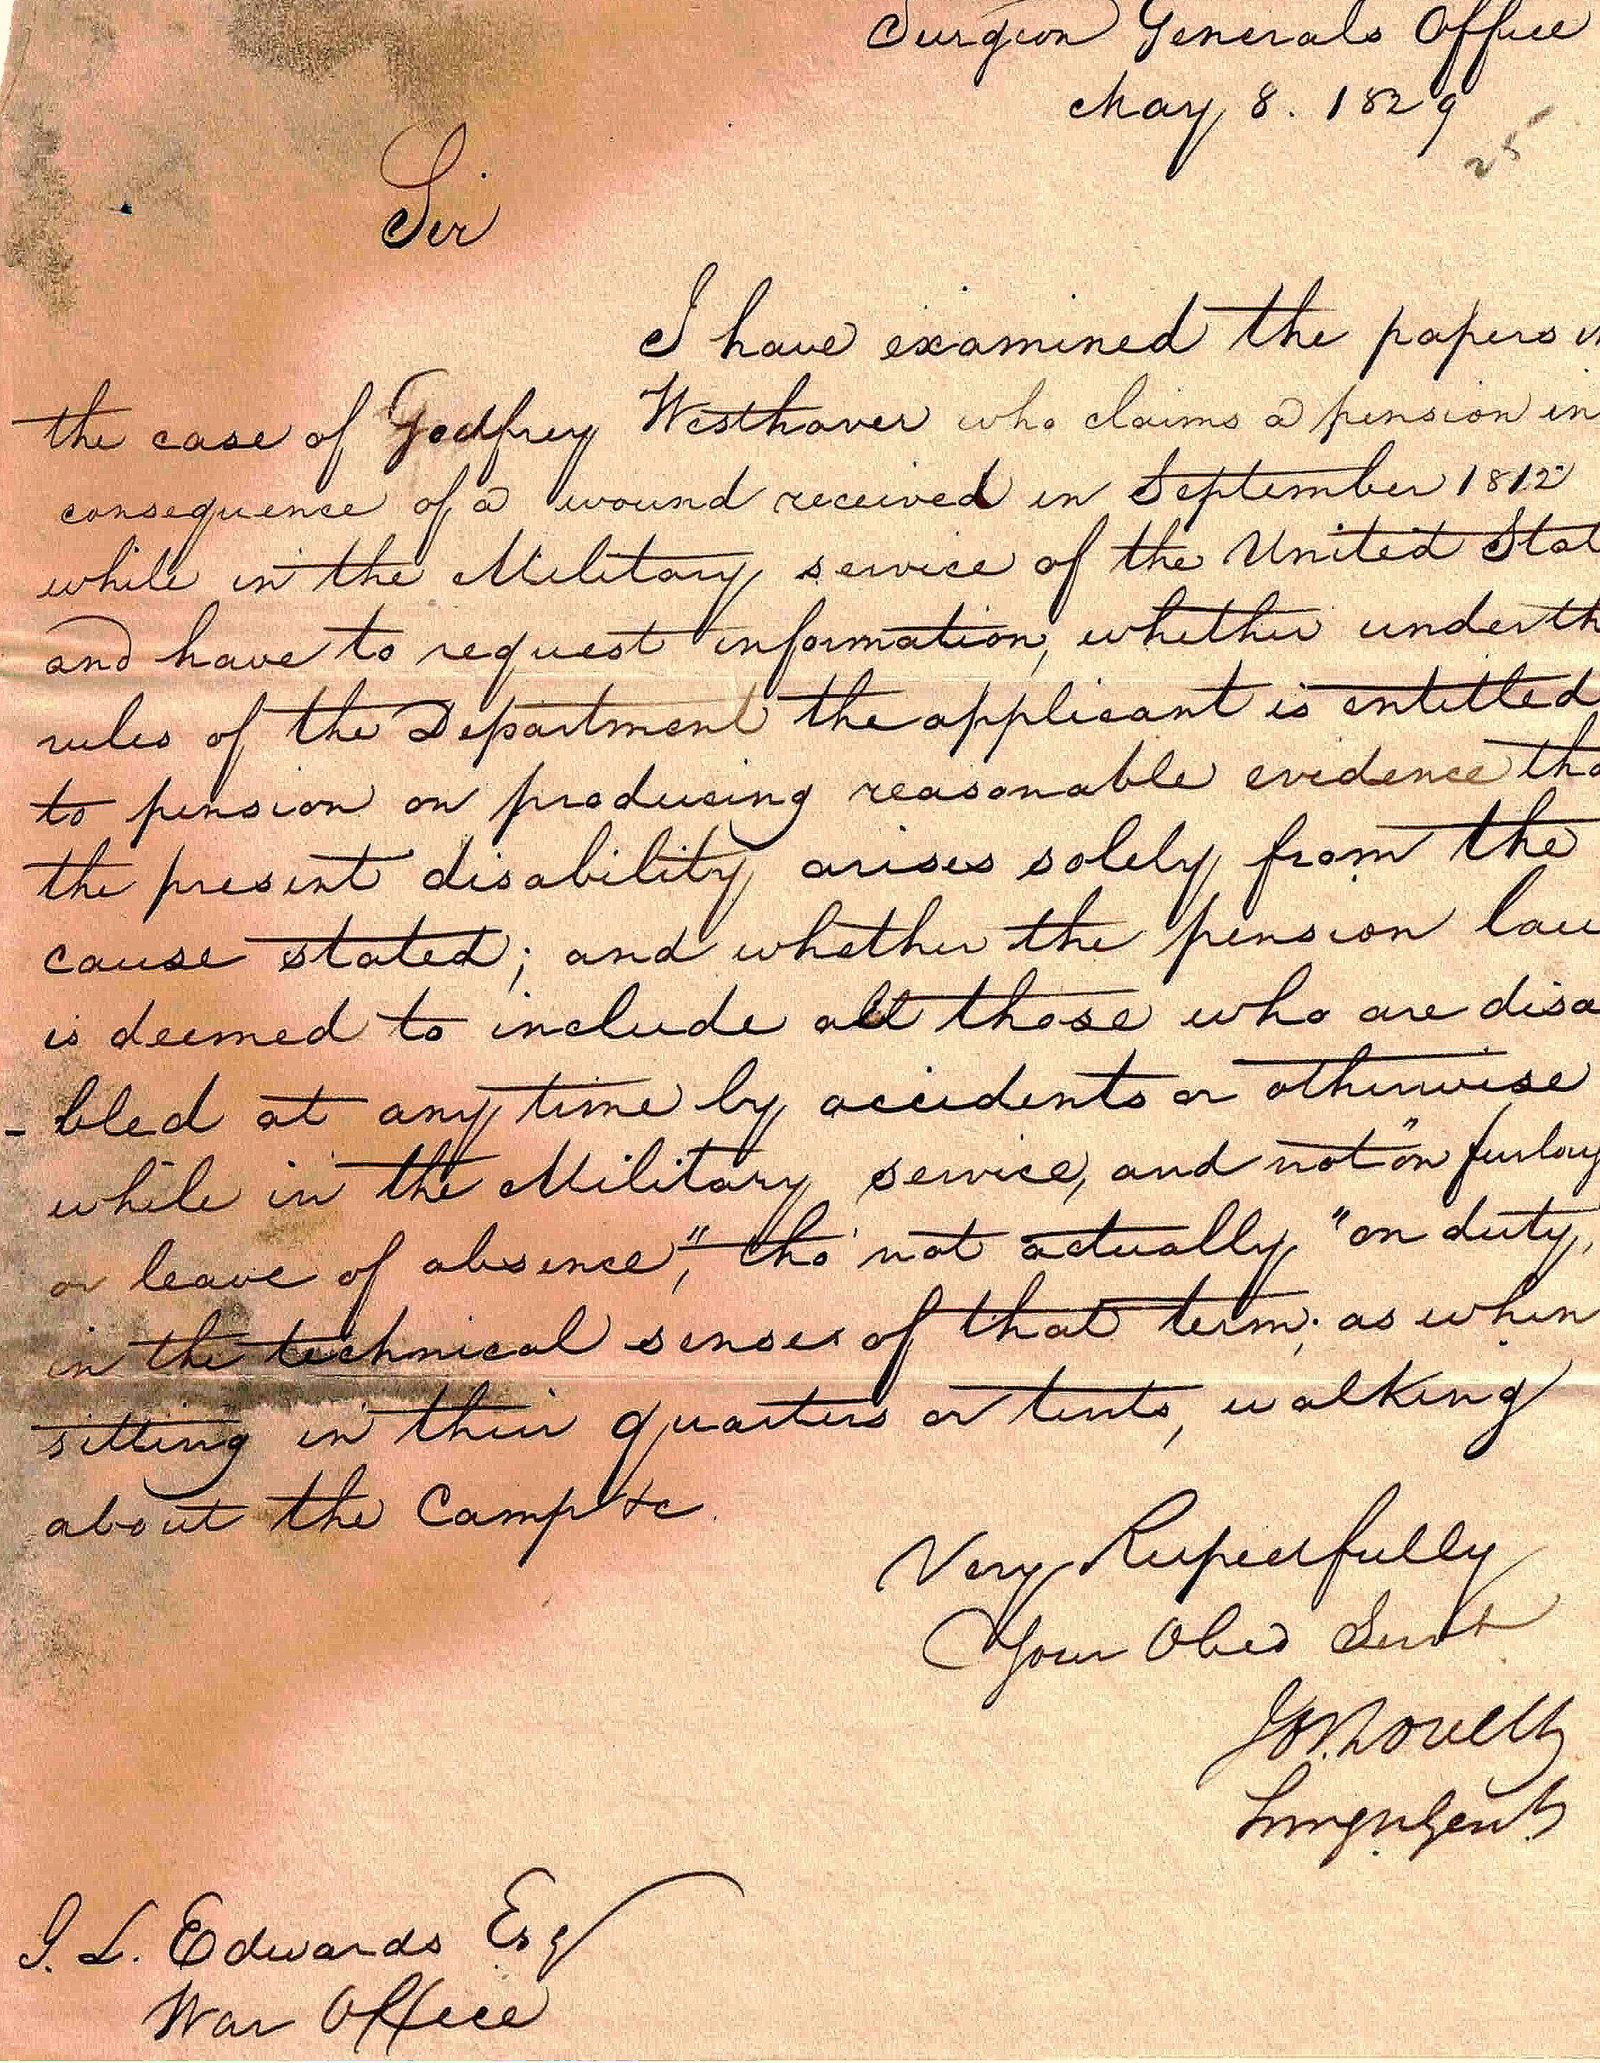 Surgeon Generals Office
May 8. 1829
25
Sir
I have examined the papers in
the case of Godfrey Westhaver who claims a pension in
consequence of a wound received in September 1812
while in the Military service of the United Stat
and have to request information, whether under th
rules of the Department the applicant is entitled
to pension on producing reasonable evidence tha
the present disability arises solely from the
cause stated; and whether the pension law
is deemed to include all those who are disa
-bled at any time by accidents or otherwise
while in the Military service, and not "on furloug
or leave of absence", tho' not actually "on duty,
in the technical senses of that term; as when
sitting in their quarters or tents, walking
about the Camp &c.
Very Respectfully
Your Obed Servt
Jos. Lovell
Surgn Genl.
J. L. Edwards Esq
War Office